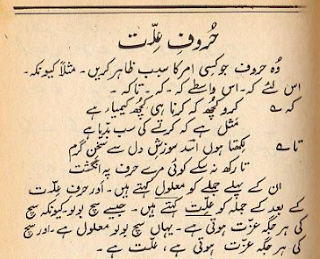 حُروفِ عِلّت
وُہ حروف جو کسی امر کا سبب ظاہر کریں۔ مثلاً کیونکہ۔
اس لئے کہ۔ اس واسطے کہ۔ کہ۔ تاکہ۔
کہ ے کرو کُچھ کہ کرنا ہی کُچھ کیمیاء ہے
مَثل ہے کہ کرتے کی سب بدّیا ہے
تا ے لِکھتا ہوں اسدؔ سوزشِ دل سے سخنِ گرم
تا رکھ نہ سکے کوئی مرے حرف پہ انگشت
ان کے پہلے جملے کو معلول کہتے ہیں۔ اور حرفِ عِلّت
کے بعد کے جملہ کو عِلّت کہتے ہیں۔ جیسے سچ بولو۔ کیونکہ سچ
کی ہر جگہ عزّت ہے۔ یہاں سچ بولو معلول ہے۔ اور سچ
کی ہر جگہ عزّت ہوتی ہے، عِلّت ہے۔